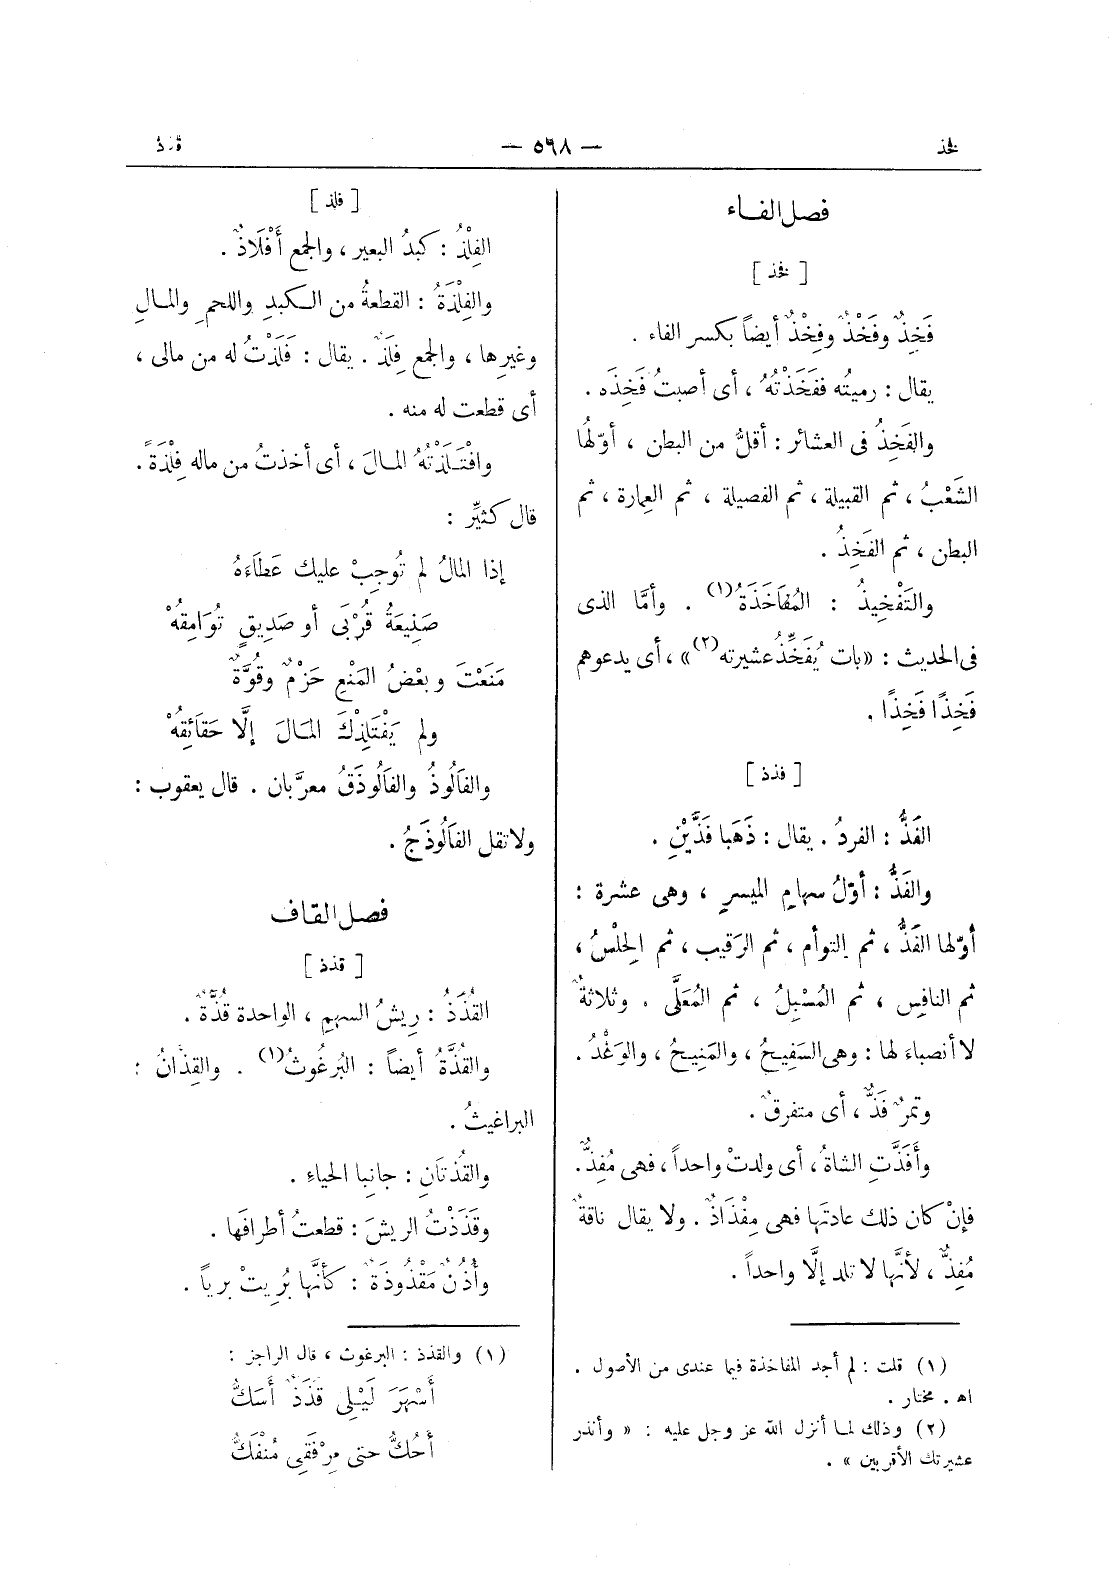 فخذ
— ٥٦٨ —
قذذ
فصل الفاء
[ فخذ ]
فَخِذٌ وفَخْذٌ وفِخْذٌ أيضاً بكسر الفاء .
يقال : رميتُه ففَخَذْتُهُ ، أى أصبتُ فَخِذَه .
والفَخِذُ فى العشائر : أقلُّ من البطن ، أوّلها
الشَعْبُ ، ثم القبيلة ، ثم الفصيلة ، ثم العِمارة ، ثم
البطن ، ثم الفَخِذُ .
والتَفْخِيذُ : المُفَاخَذَةُ(١) . وأمَّا الذى
فى الحديث : «بات يُفَخِّذُ عشيرته(٢)» ، أى يدعوهم
فَخِذًا فَخِذًا .
[ فذذ ]
الفَذُّ : الفردُ . يقال : ذَهَبا فَذَّيْنِ .
والفَذُّ : أوّلُ سهامِ الميسرِ ، وهى عشرة :
أوّلها الفَذُّ ، ثم التوأم ، ثم الرَقيب ، ثم الحِلْسُ ،
ثم النافِس ، ثم المُسْبِلُ ، ثم المُعَلَّى . وثلاثةٌ
لا أنصباءَ لها : وهى السَفِيحُ ، والمَنِيحُ ، والوَغْدُ .
وتمرٌ فَذٌّ ، أى متفرقٌ .
وأَفَذَّتِ الشاةُ ، أى ولدتْ واحداً ، فهى مُفِذٌّ .
فإنْ كان ذلك عادتَها فهى مِفْذَاذٌ . ولا يقال ناقةٌ
مُفِذٌّ ، لأنَّها لا تلد إلَّا واحداً .
(١) قلت : لم أجد المفاخذة فيما عندى من الأصول .
اهـ . مختار .
(٢) وذلك لما أنزل الله عز وجل عليه : « وأنذر
عشيرتك الأقربين » .
[ فلذ ]
الفِلْذُ : كبدُ البعير ، والجمع أَفْلَاذٌ .
والفِلْذَةُ : القطعةُ من الكبدِ واللحمِ والمالِ
وغيرِها ، والجمع فِلَذٌ . يقال : فَلَذْتُ له من مالى ،
أى قطعت له منه .
وافْتَلَذْتُهُ المالَ ، أى أخذتُ من ماله فِلْذَةً .
قال كثيِّر :
إذا المالُ لم تُوجِبْ عليك عَطَاءَهُ
صَنِيعَةُ قُرْبَى أو صَدِيقٍ تُوَامِقُهْ
مَنَعْتَ وبعْضُ المَنْعِ حَزْمٌ وقُوَّةٌ
ولم يَفْتَلِذْكَ المَالَ إلَّا حَقَائِقُهْ
والفَالُوذُ والفَالُوذَقُ معرَّبان . قال يعقوب :
ولا تقل الفَالُوذَجُ .
فصل القاف
[ قذذ ]
القُذَذُ : رِيشُ السهمِ ، الواحدة قُذَّةٌ .
والقُذَّةُ أيضاً : البُرغُوثُ(١) . والقِذَّانُ :
البراغيثُ .
والقُذَّتَانِ : جانبا الحياءِ .
وقَذَذْتُ الريشَ : قطعتُ أطرافَها .
وأُذُنٌ مَقْذُوذَةٌ : كأنَّها بُرِيتْ برياً .
(١) والقذذ : البرغوث ، قال الراجز :
أَسْهَرَ لَيْلِى قُذَذٌ أَسَكُّ
أَحُكُّ حتى مِرْفَقِى مُنْفَكُّ